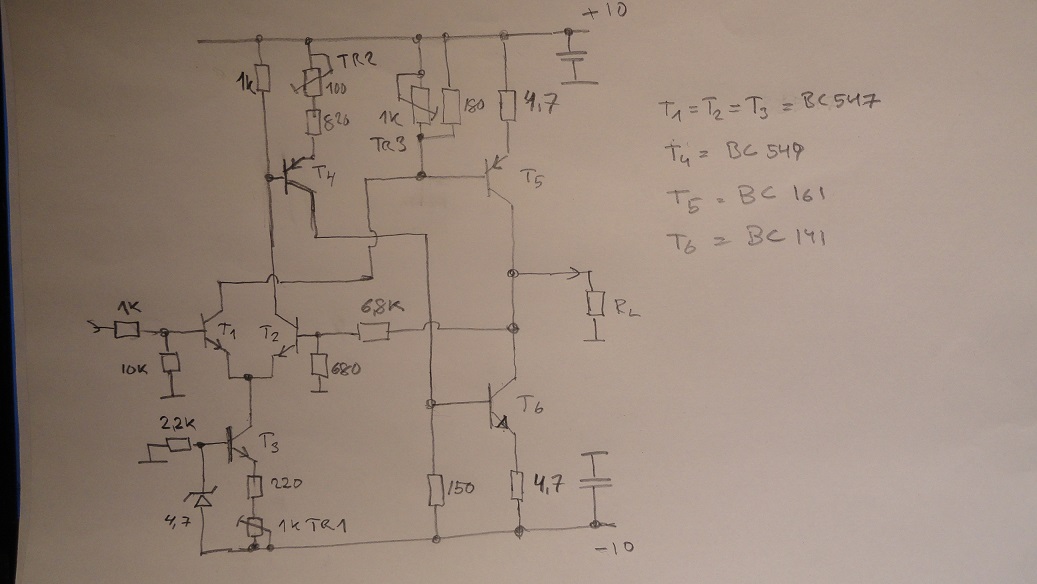 +10
1K
TR2
100
820
1K
TR3
180
4,7
T4
T5
T1 = T2 = T3 = BC547
T4 = BC549
T5 = BC 161
T6 = BC 141
1K
T1
T2
6,8K
RL
10K
680
2,2K
T3
T6
220
4,7
1K TR1
150
4,7
-10